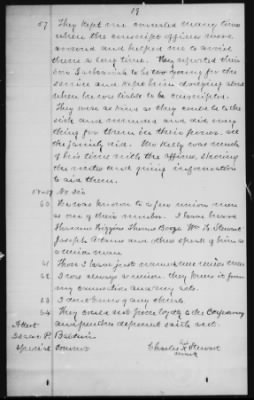 19
57 They kept me concealed many times
when the conscript officers were
around and helped me to avoid
them a long time. They reported their
son Zachariah to be too young for the
service and kept him dodging about
when he was liable to be conscripted.
They were as kind as they could be to the
sick and and did any
thing for them in their power, all
the family did. Mr Kelly was much
of his time with the officers, showing
the routes and giving information
to aid them.
58-59 No Sir
60 He was known to a few union men
as one of their number. I have heard
Higgins Thomas Booze Wm H. Stewart
Joseph Adams and others speak of him as
a union man
61 Those I have just named were union men
62 I was always a union. they knew it from
my connection and my acts.
63 I don't know of any others.
64 They could not prove loyalty to the Confederacy
and further deponent saith not.
Attest
Isaac P. Baldwin
Special Commr
Charles X Stewart
mark